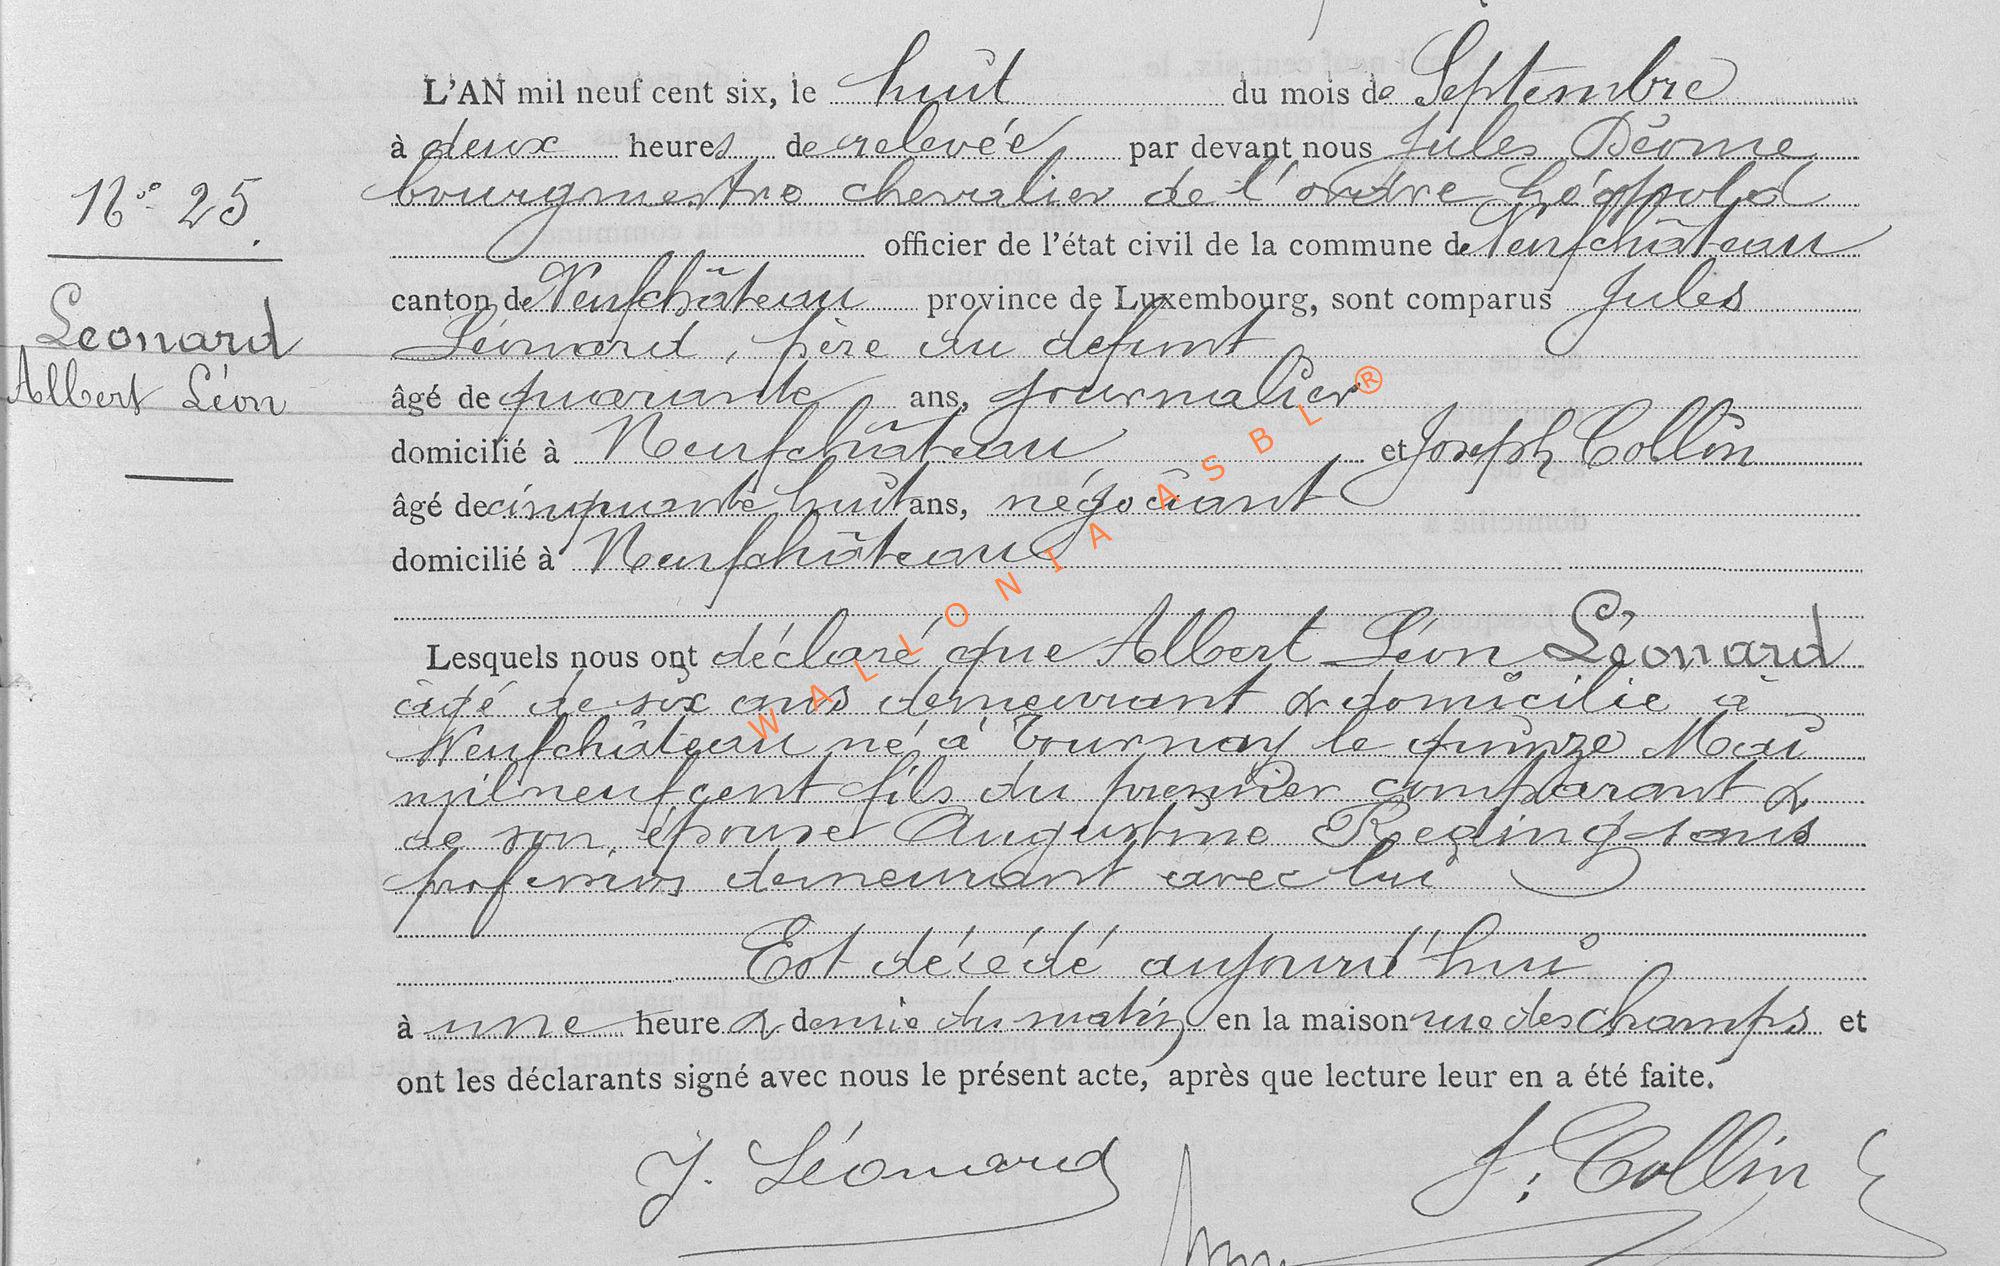 L'AN mil neuf cent six, le huit du mois de Septembre
à deux heures de relevée par devant nous Jules Déome
bourgmestre chevalier de l'ordre Léopold
N° 25.
officier de l'état civil de la commune de Neufchâteau
canton de Neufchâteau province de Luxembourg, sont comparus Jules
Leonard
Léonard, père du defunt
Albert Léon
âgé de quarante ans, journalier
domicilié à Neufchâteau et Joseph Collin
âgé de cinquante huit ans, négociant
domicilié à Neufchâteau
WALLONIA ASBL ®
Lesquels nous ont déclaré que Albert Léon Léonard
âgé de six ans demeurant & domicilié à
Neufchâteau né à Tournay le quinze Mai
mil neuf cent fils du premier comparant &
de son épouse Augustine Reding sans
profession demeurant avec lui
Est décédé aujourd'hui
à une heure & demie du matin en la maison rue des Champs et
ont les déclarants signé avec nous le présent acte, après que lecture leur en a été faite.
J. Léonard
J. Collin